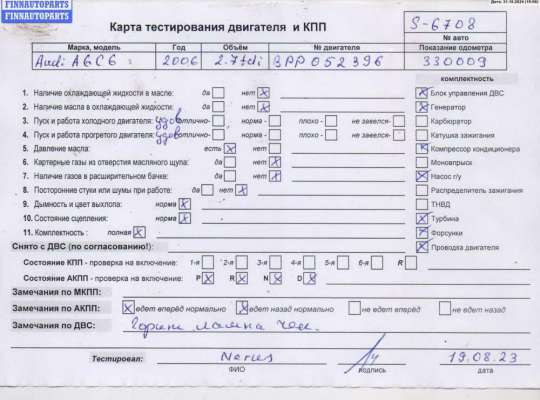 FINNAUTOPARTS
FINNAUTOPARTS
Дата: 31.10.2024
Карта тестирования двигателя и КПП
S-6708
№ авто
Марка, модель Год Объём № двигателя Показание одометра
Audi A6C6 2006 2.7tdi BPP052396 330009
комплектность
1. Наличие охлаждающей жидкости в масле: да нет X
X Блок управления ДВС
2. Наличие масла в охлаждающей жидкости: да нет X
X Генератор
3. Пуск и работа холодного двигателя: удов отлично- норма - плохо - не завелся-
Карбюратор
4. Пуск и работа прогретого двигателя: удов отлично- норма - плохо - не завелся-
Катушка зажигания
5. Давление масла: есть X нет
X Компрессор кондиционера
6. Картерные газы из отверстия масляного щупа: да нет X
Моновпрыск
7. Наличие газов в расширительном бачке: да нет X
X Насос г/у
8. Посторонние стуки или шумы при работе: да нет X
Распределитель зажигания
9. Дымность и цвет выхлопа: норма X
ТНВД
10. Состояние сцепления: норма X
X Турбина
11. Комплектность : полная X
X Форсунки
Снято с ДВС (по согласованию!):
X Проводка двигателя
Состояние КПП - проверка на включение: 1-я 2-я 3-я 4-я 5-я 6-я R
Состояние АКПП - проверка на включение: P X R X N X D X
Замечания по МКПП:
Замечания по АКПП: X едет вперёд нормально X едет назад нормально не едет вперед не едет назад
Замечания по ДВС: Горит лампа чек.
Тестировал: Nerius 19.08.23
ФИО подпись дата